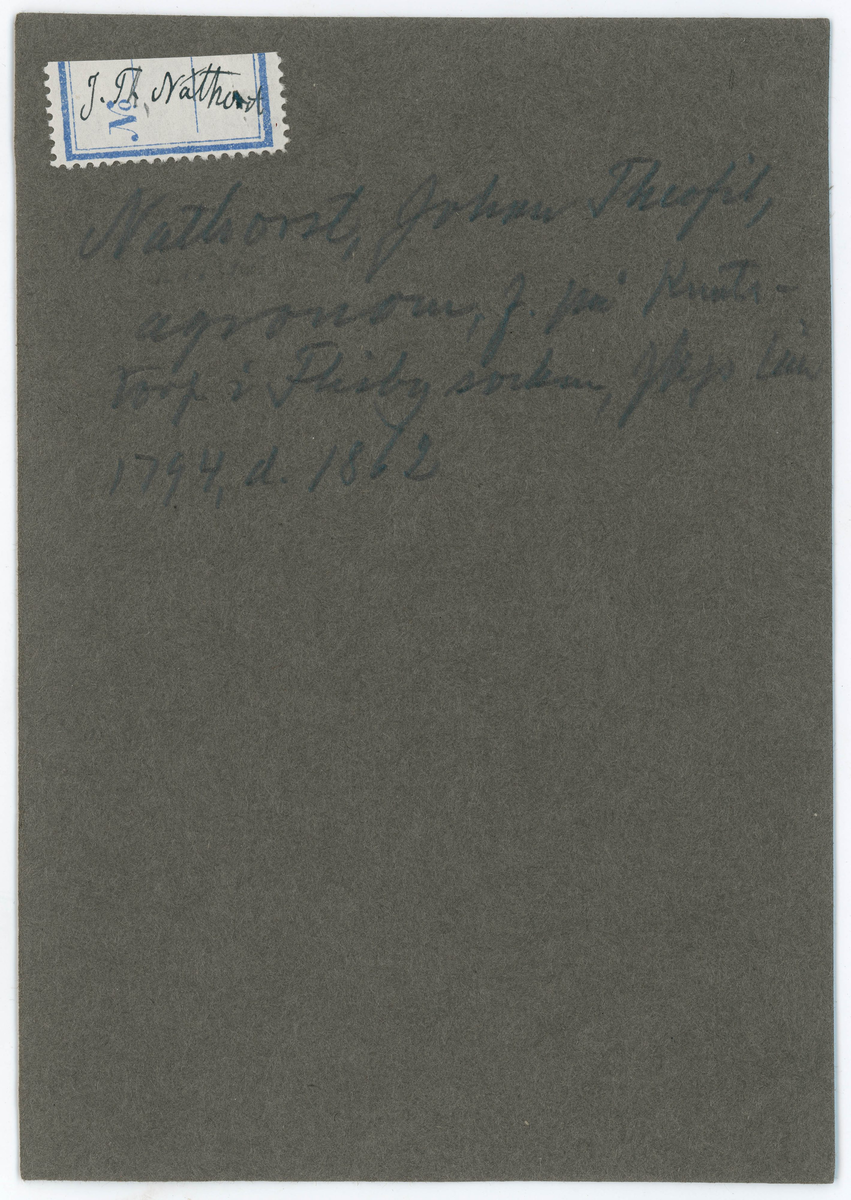 J. Th. Nathorst
No
Nathorst, Johan Theofil,
agronom, f. på Knuts-
torp i Flisby socken, Jkps län
1794, d. 1862